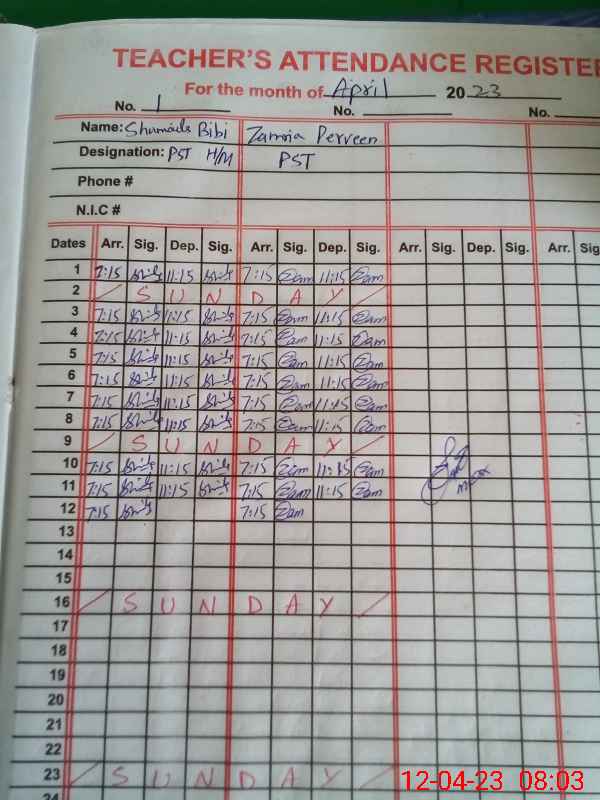 TEACHER'S ATTENDANCE REGISTE
For the month of April 2023
No. 1 No. No.
Name: Shumaila Bibi Zamria Perveen
Designation: PST H/M PST
Phone #
N.I.C #
Dates Arr. Sig. Dep. Sig. Arr. Sig. Dep. Sig. Arr. Sig. Dep. Sig. Arr. Sig
1 7:15 11:15 7:15 Zam 11:15 Zam
2 SUNDAY
3 7:15 11:15 7:15 Zam 11:15 Zam
4 7:15 11:15 7:15 Zam 11:15 Zam
5 7:15 11:15 7:15 Zam 11:15 Zam
6 7:15 11:15 7:15 Zam 11:15 Zam
7 7:15 11:15 7:15 Zam 11:15 Zam
8 7:15 11:15 7:15 Zam 11:15 Zam
9 SUNDAY
10 7:15 11:15 7:15 Zam 11:15 Zam
11 7:15 11:15 7:15 Zam 11:15 Zam
12 7:15 7:15 Zam
13
14
15
16 SUNDAY
17
18
19
20
21
22
23 SUNDAY
24
12-04-23 08:03